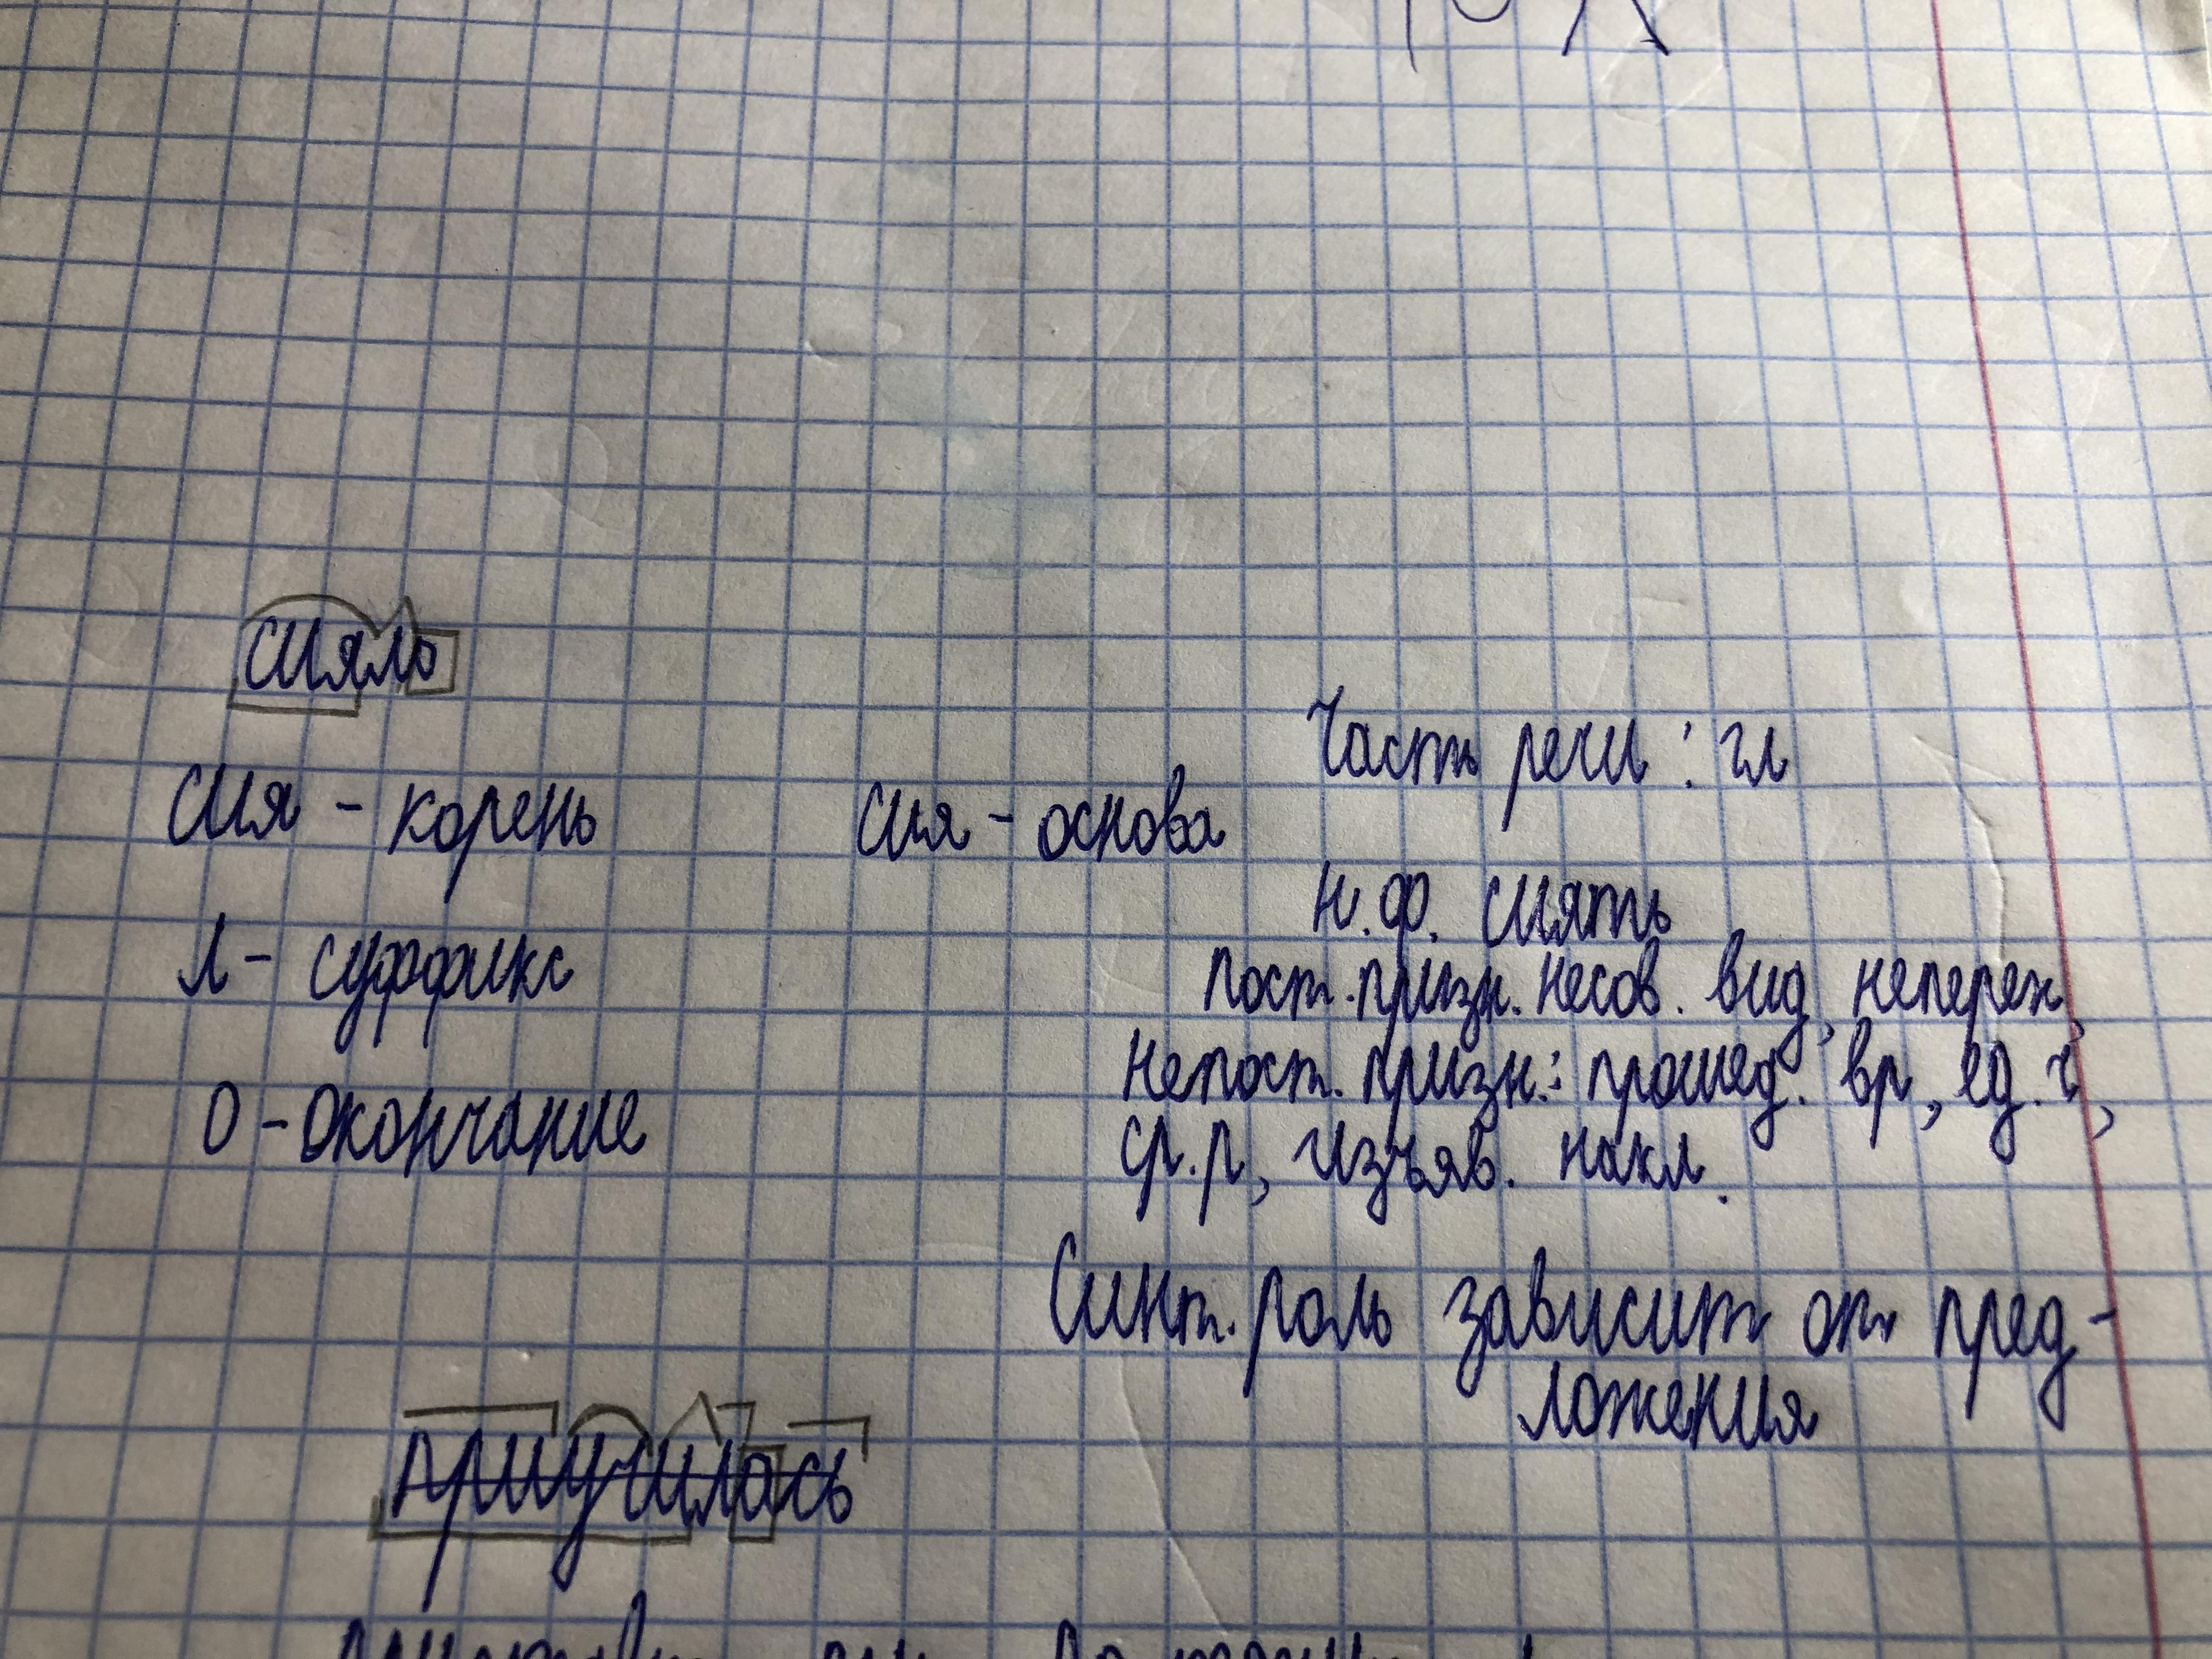 сияло
Часть речи : гл
сия - корень
сия - основа
н.ф. сиять
Л - суффикс
пост. призн. несов. вид, неперех,
непост. призн.: прошед. вр, ед. ч,
О - окончание
ср.р, изъяв. накл.
Синт. роль зависит от пред-
ложения
приучилась